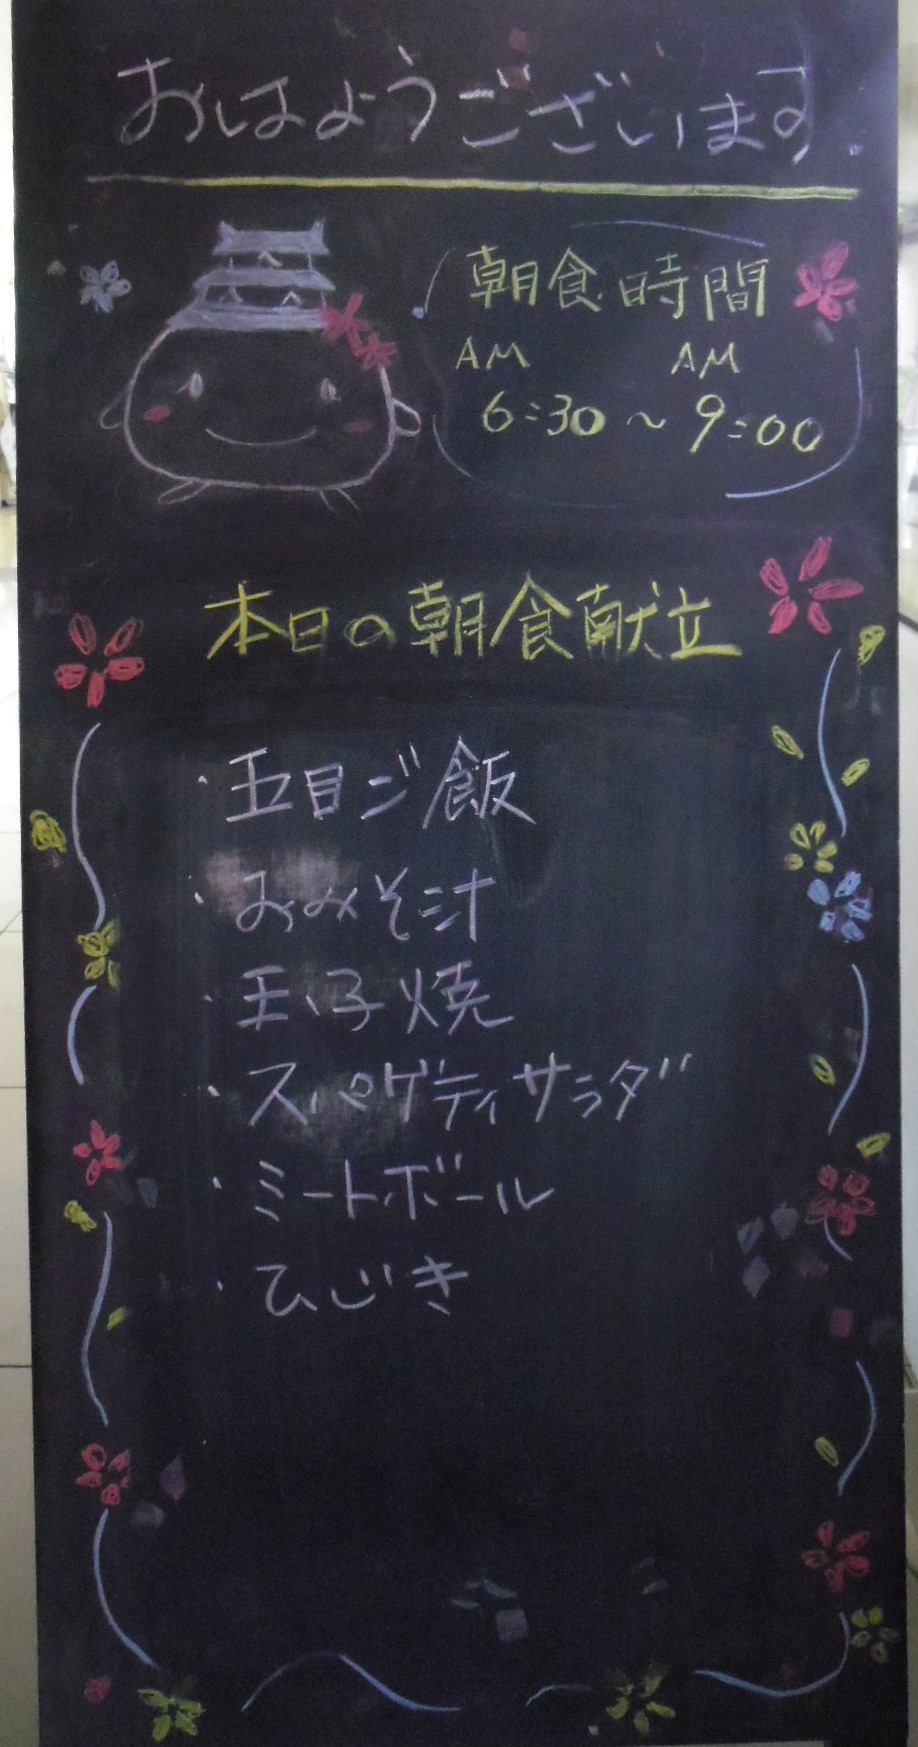 おはようございます
朝食時間
AM AM
6:30～9:00
本日の朝食献立
・五目ご飯
・おみそ汁
・玉子焼
・スパゲティサラダ
・ミートボール
・ひじき